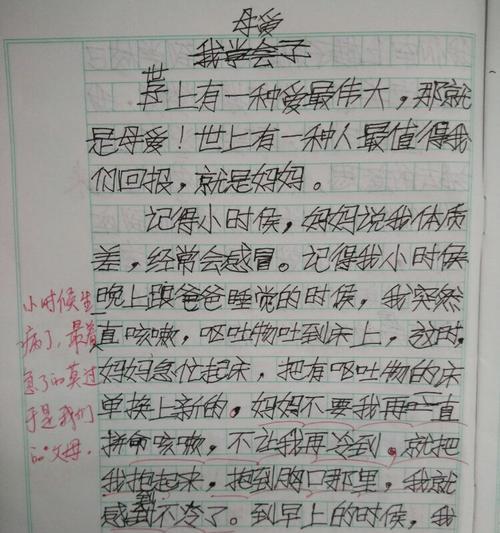 母爱
我学会了
世上有一种爱最伟大，那就
是母爱！世上有一种人最值得我
们回报，就是妈妈。
记得小时候，妈妈说我体质
差，经常会感冒。记得我小时候
晚上跟爸爸睡觉的时候，我突然
直咳嗽，呕吐物吐到床上，这时，
妈妈急忙起床，把有呕吐物的床
单换上新的，妈妈不要我再一直
咳嗽，不让我再冷到，就把
我抱起来，抱到胸口那里，我就
感到不冷了。到早上的时候，我
小时候生
病了，最着
急了的莫过
于是我们
的父母。